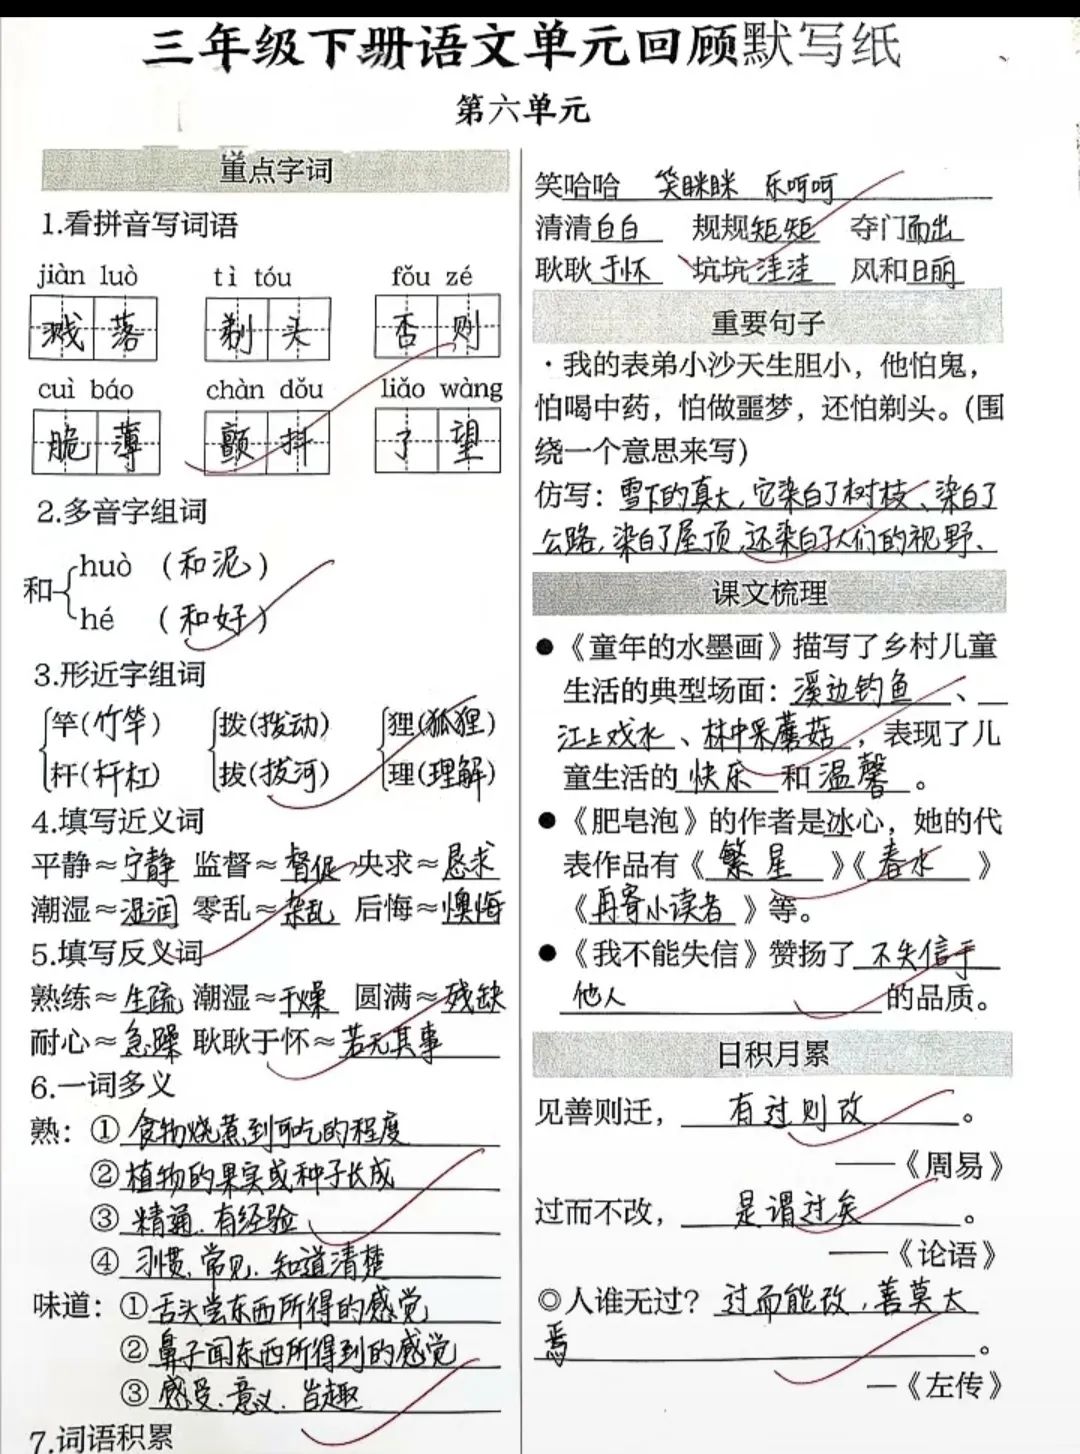 三年级下册语文单元回顾默写纸
第六单元
重点字词
1.看拼音写词语
jiàn luò tì tóu fǒu zé
溅落 剃头 否则
cuì báo chàn dǒu liǎo wàng
脆薄 颤抖 了望
2.多音字组词
和 huò (和泥)
hé (和好)
3.形近字组词
竿(竹竿) 拨(拨动) 狸(狐狸)
杆(杆杠) 拔(拔河) 理(理解)
4.填写近义词
平静≈宁静 监督≈督促 央求≈恳求
潮湿≈湿润 零乱≈杂乱 后悔≈懊悔
5.填写反义词
熟练≈生疏 潮湿≈干燥 圆满≈残缺
耐心≈急躁 耿耿于怀≈若无其事
6.一词多义
熟：①食物烧煮到可吃的程度
②植物的果实或种子长成
③精通.有经验
④习惯.常见.知道清楚
味道：①舌头尝东西所得的感觉
②鼻子闻东西所得到的感觉
③感受.意义.旨趣
7.词语积累
笑哈哈 笑眯眯 乐呵呵
清清白白 规规矩矩 夺门而出
耿耿于怀 坑坑洼洼 风和日丽
重要句子
·我的表弟小沙天生胆小，他怕鬼，
怕喝中药，怕做噩梦，还怕剃头。(围
绕一个意思来写)
仿写：雪下的真大,它染白了树枝、染白了
公路,染白了屋顶,还染白了人们的视野、
课文梳理
●《童年的水墨画》描写了乡村儿童
生活的典型场面：溪边钓鱼、
江上戏水、林中采蘑菇，表现了儿
童生活的快乐和温馨。
●《肥皂泡》的作者是冰心，她的代
表作品有《繁星》《春水》
《再寄小读者》等。
●《我不能失信》赞扬了不失信于
他人的品质。
日积月累
见善则迁，有过则改。
——《周易》
过而不改，是谓过矣。
——《论语》
◎人谁无过？过而能改,善莫大
焉。
—《左传》